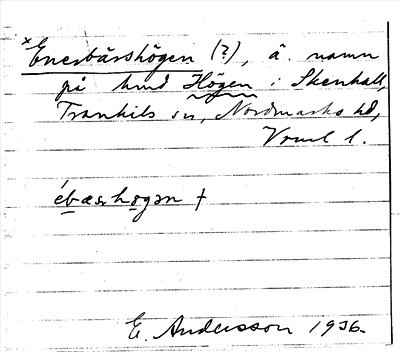 *Enerbärshögen (?), ä. namn
på hmd Högen i Skenhall,
Trankils sn, Nordmarks hd,
Vrml l.
ébæshogən †
E. Andersson 1936.